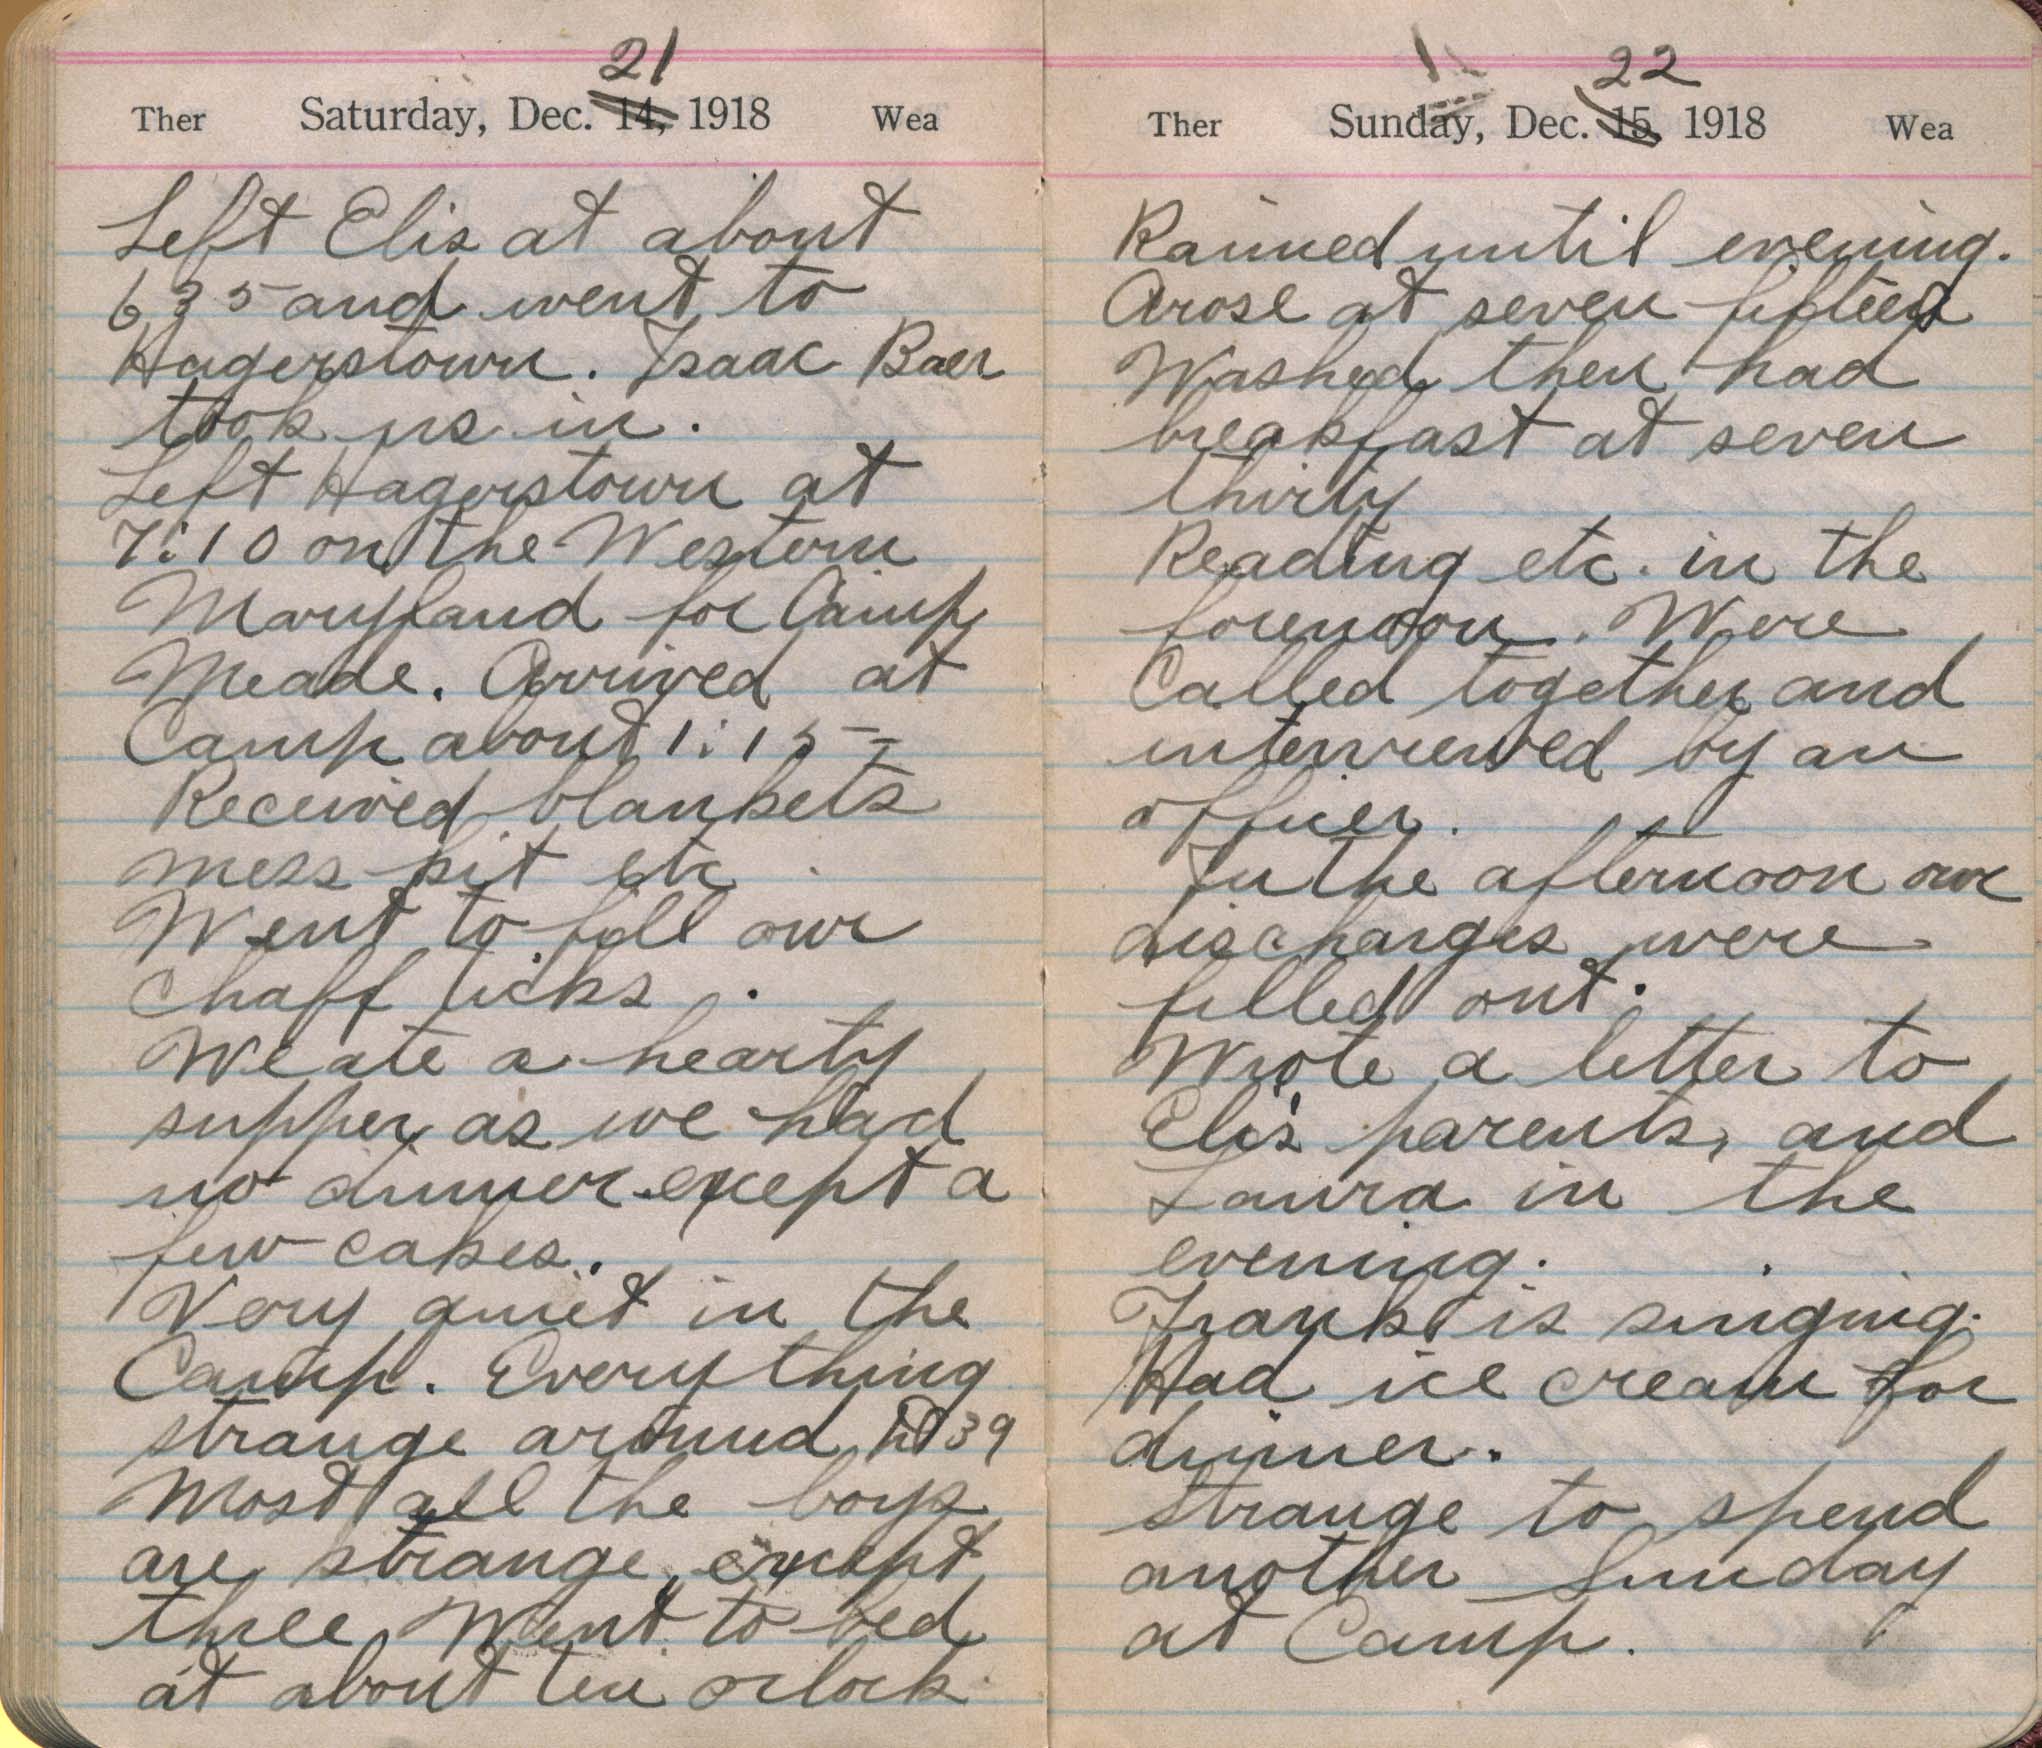 21
Ther Saturday, Dec. 14, 1918 Wea
Left Elis at about
6 35 and went to
Hagerstown. Isaac Baer
took us in.
Left Hagerstown at
7:10 on the Western
Maryland for Camp
Meade. Arrived at
Camp about 1:15-
Received blankets
mess kit etc.
Went to fill our
chaff ticks.
We ate a hearty
supper as we had
no dinner except a
few cakes.
Very quiet in the
Camp. Everything
strange around 39
Most all the boys
are strange, except
three Went to bed
at about ten oclock.
22
Ther Sunday, Dec. 15, 1918 Wea
Rained until evening.
Arose at seven fifteen
Washed then had
breakfast at seven
thirty
Reading etc. in the
forenoon. Were
called together and
interviewed by an
officer.
In the afternoon our
discharges were
filled out.
Wrote a letter to
Eli's parents, and
Laura in the
evening.
Frank is singing.
Had ice cream for
dinner.
Strange to spend
another Sunday
at Camp.